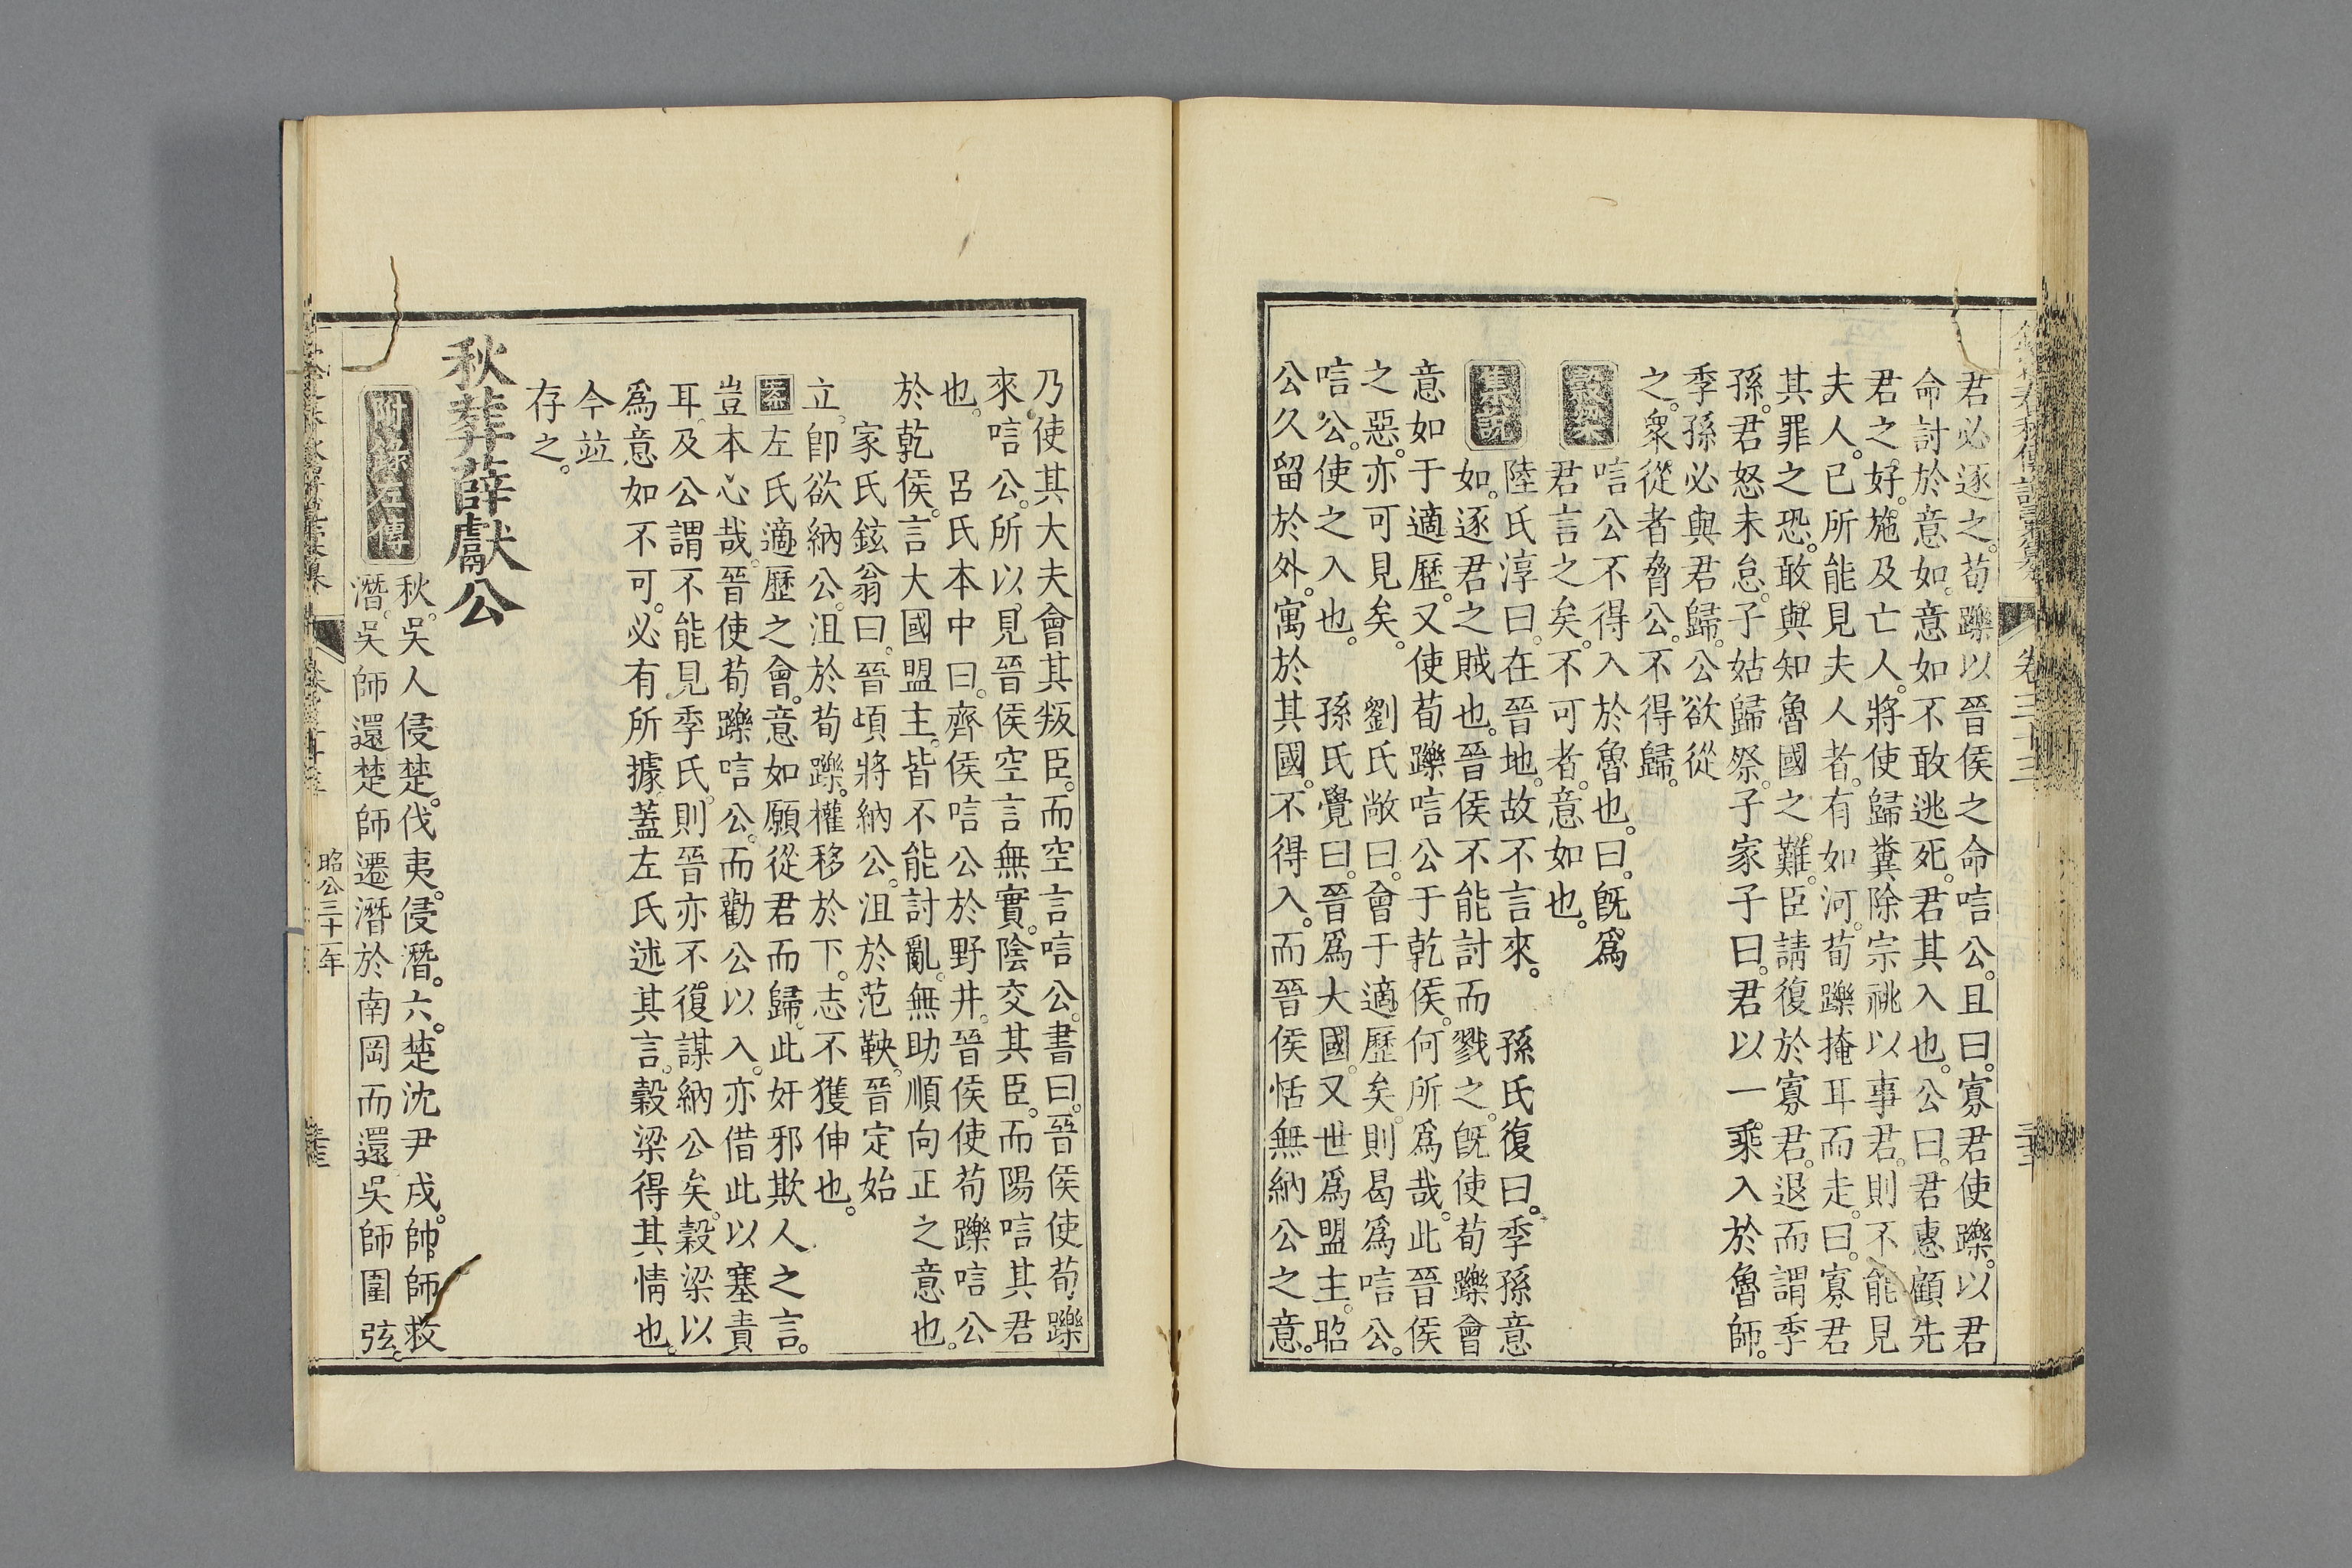 君必逐之。荀躒以晉侯之命唁公。且曰。寡君使躒。以君
命討於意如。意如不敢逃死。君其入也。公曰。君惠顧先
君之好。施及亡人。將使歸糞除宗祧以事君。則不能見
夫人。已所能見夫人者。有如河。荀躒掩耳而走。曰。寡君
其罪之恐。敢與知魯國之難。臣請復於寡君。退而謂季
孫。君怒未怠。子姑歸祭。子家子曰。君以一乘入於魯師。
季孫必與君歸。公欲從
之。衆從者脅公。不得歸。
穀梁
唁公不得入於魯也。曰。旣爲
君言之矣。不可者。意如也。
集說
陸氏淳曰。在晉地。故不言來。 孫氏復曰。季孫意
如。逐君之賊也。晉侯不能討而戮之。旣使荀躒會
意如于適歷。又使荀躒唁公于乾侯。何所爲哉。此晉侯
之惡。亦可見矣。 劉氏敞曰。會于適歷矣。則曷爲唁公。
唁公。使之入也。 孫氏覺曰。晉爲大國。又世爲盟主。昭
公久留於外。寓於其國。不得入。而晉侯恬無納公之意。
卷三十三
乃使其大夫會其叛臣。而空言唁公。書曰。晉侯使荀躒
來唁公。所以見晉侯空言無實。陰交其臣。而陽唁其君
也。 呂氏本中曰。齊侯唁公於野井。晉侯使荀躒唁公
於乾侯。言大國盟主。皆不能討亂。無助順向正之意也。
家氏鉉翁曰。晉頃將納公。沮於范鞅。晉定始
立。卽欲納公。沮於荀躒。權移於下。志不獲伸也。
案左氏適歷之會。意如願從君而歸。此奸邪欺人之言。
豈本心哉。晉使荀躒唁公。而勸公以入。亦借此以塞責
耳。及公謂不能見季氏。則晉亦不復謀納公矣。穀梁以
爲意如不可。必有所據。蓋左氏述其言。穀梁得其情也。
今並
存之。
秋葬薛獻公
附錄左傳
秋。吳人侵楚。伐夷。侵潛。六。楚沈尹戌。帥師救
潛。吳師還。楚師遷潛於南岡而還。吳師圍弦。
昭公三十一年